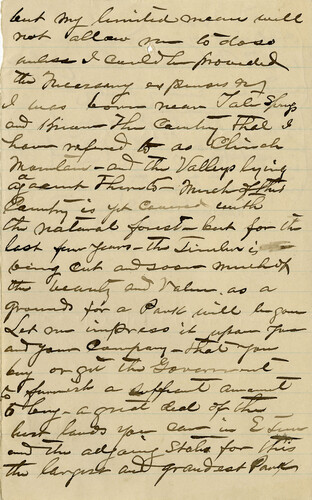 but my limited means will
not allow me to do so
unless I could be provided
the necessary expenses only
I was born near Tate Spgs
and know the Country that I
have refered to as Clinch
Mountain - and the Valleys lying
against thereto - Much of this
Country is yet covered with
the natural forest - but for the
last few years - the timber is
being cut and soon much of
the beauty and value as a
grounds for a Park will be gon
Let me impress it upon you
and your Company - that you
buy or get the Government
to furnish a sufficent amount
to buy - a great deal of the
best lands you can in E Tenn
and the adjoing States for this
the largest and grandest Park